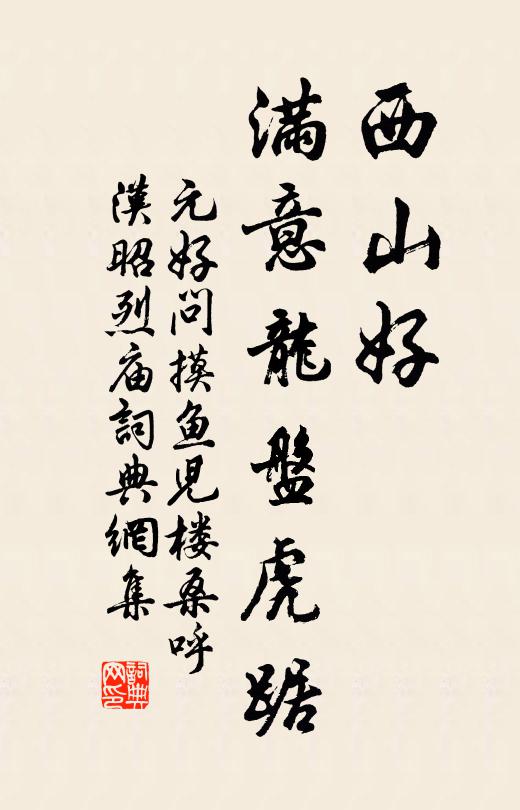 西山好
滿意龍盤虎踞
元好问摸鱼児楼桑呼
漢昭烈庙詞典網集
詞典网印